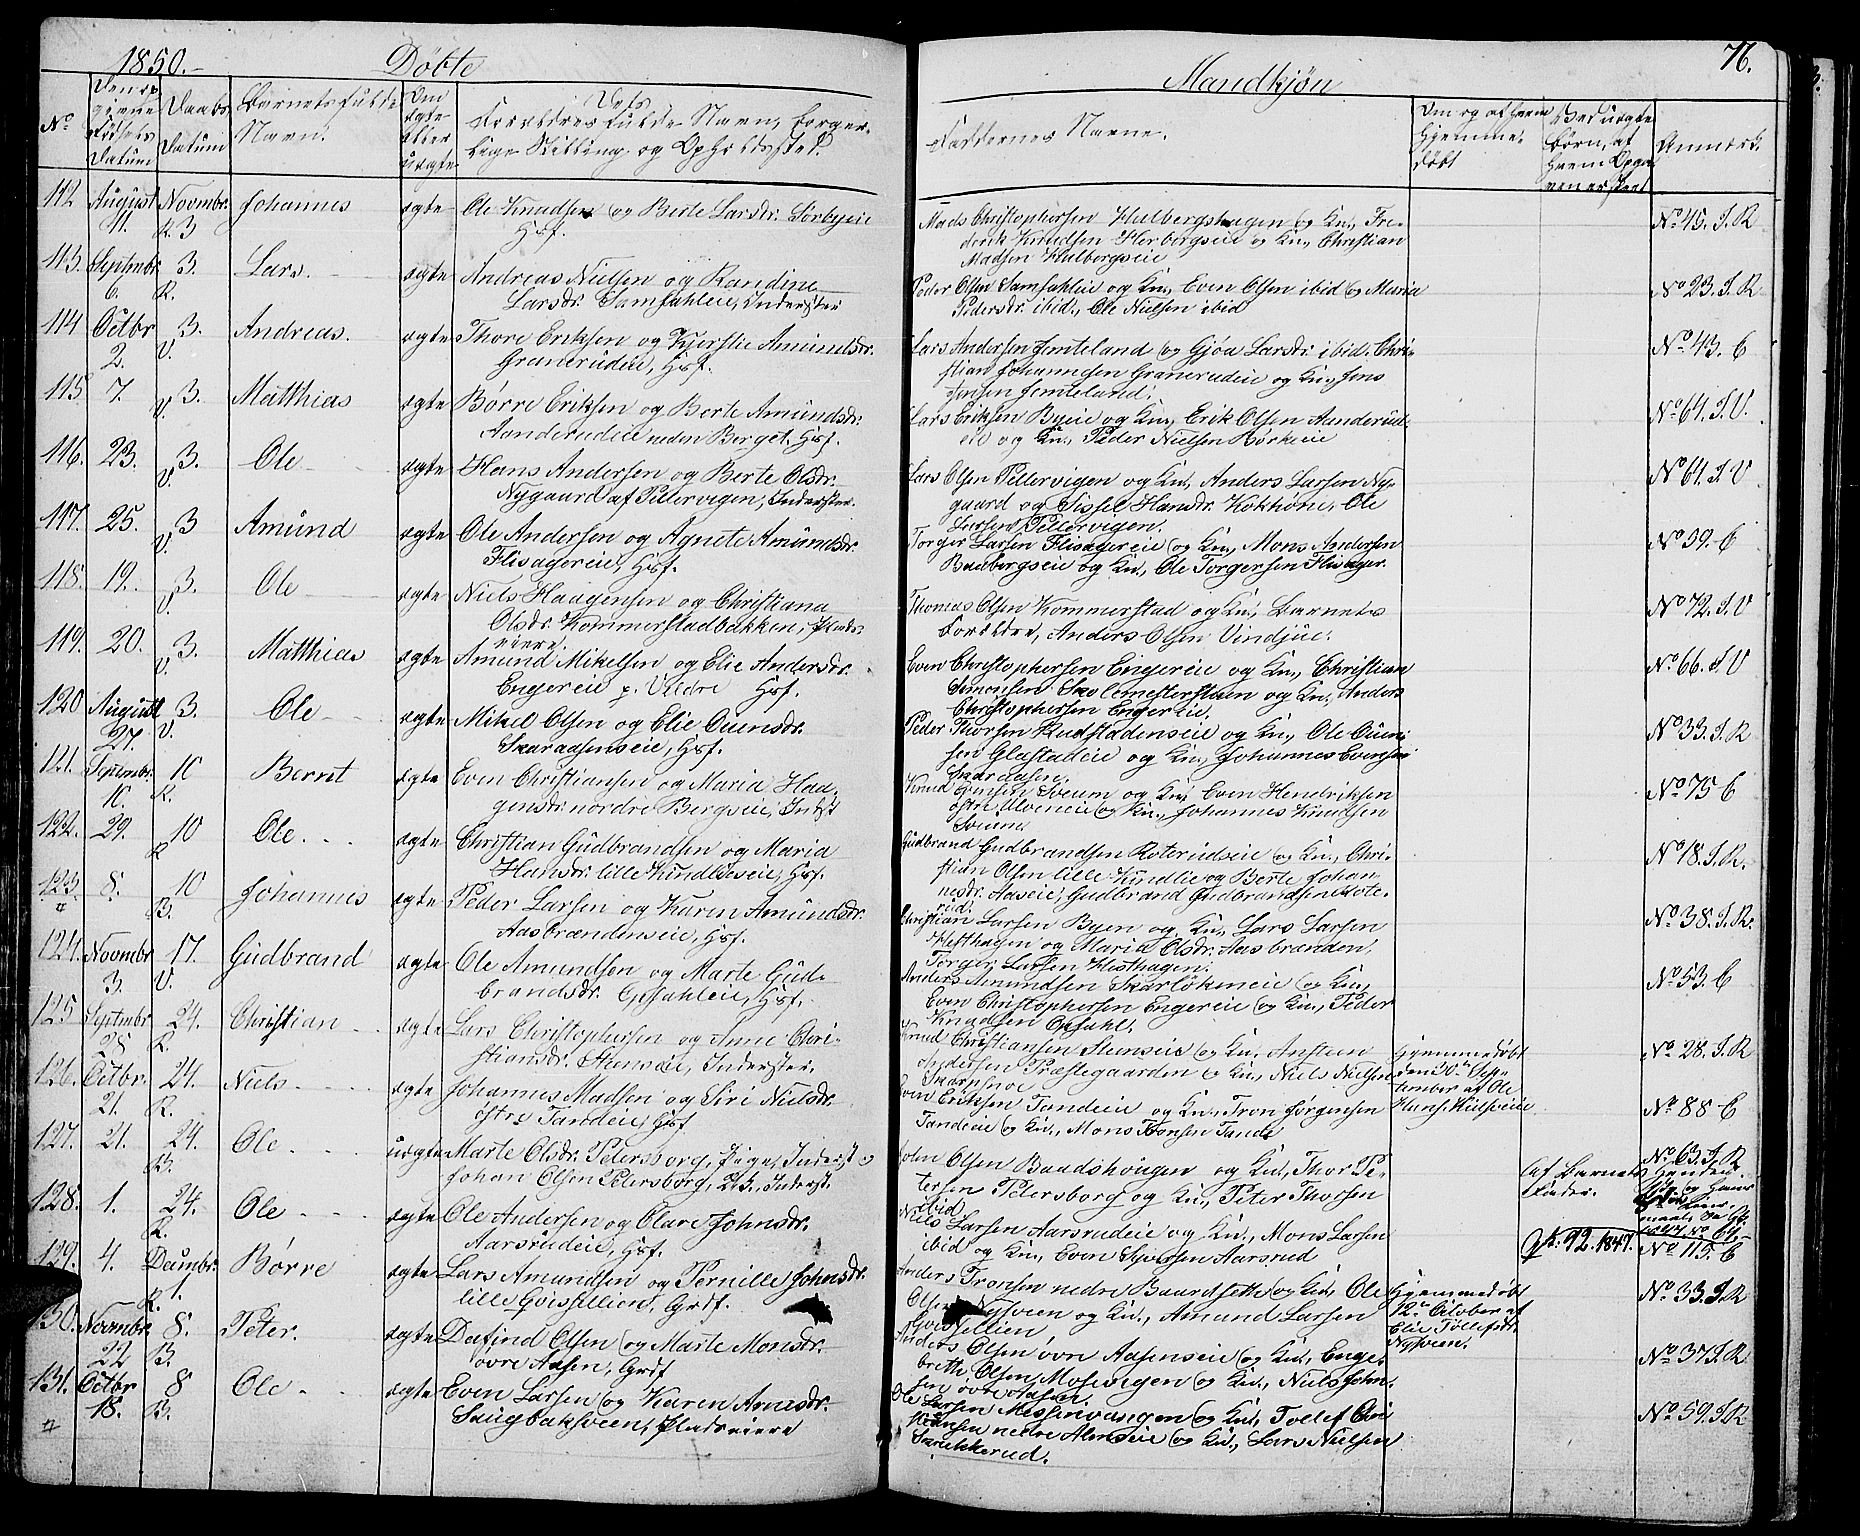 1850. Døbte
Mandkjøn 76.
No
Daabs Datum
Barnets fulde Navn.
Om ægte eller uægte
Forældres fulde Navn, borgerlige Stilling og Opholdssted.
Faddernes Navne.
Om og af hvem hjemmedøbt
Ved uægte Børn, af hvem
Anmærk.
112 August 11. Novmbr. R. 3 Johannes ægte Ole Knudsen og Berte Larsdr. Sørbyeie
Hsf.
Mads Christophersen Hulbergshagen og Kn., Fre-
derik Knudsen Herbergseie og Kn., Christian
Madsen Hulbergseie
No 45. I. R
113. Septmbr 6. 3. R. Lars. ægte Andreas Nielsen og Randine
Larsdr. Samsahleie, Inderster
Peder Olsen Samsahleie og Kn., Even Olsen ibid og Maria
Pedersdr. ibid., Ole Nielsen ibid
No 23. I. R
114 Octbr 2. 3. V. Andreas. ægte Thore Eriksen og Kjerstie Amundsdr.
Granerudeie, Hsf.
Lars Andersen Jemteland og Gjøa Larsdr. ibid. Chri-
stian Johannesen Granerudeie og Kn., Jens
Jensen Jemteland.
No 43. C
115 7. 3. V. Matthias ægte Børre Eriksen og Berte Amundsdr.
Aanderudeie neden Berget. Hsf.
Lars Eriksen Byeie og Kn., Erik Olsen Aanderud-
eie og Kn., Peder Nielsen
No 64. I. V.
116. 23. 3. V. Ole ægte Hans Andersen og Berte Olsdr.
Nygaard af Pellervigen, Inderster.
Lars Olsen Pellervigen og Kn., Anders Larsen Ny-
gaard og Sissel Hansdr. Ole
Larsen Pellervigen.
No 61. I. V
117. 25. 3 V. Amund ægte Ole Andersen og Agnete Amundsdr.
Flisagereie, Hsf.
Torger Larsen Flisagereie og Kn., Mons Andersen
Baabergseie og Kn., Ole Torgersen Flisager.
No 39. C
118. 19. 3. V. Ole ægte Niels Haagensen og Christiana
Olsdr. Kommerstadbakken, Plads-
eiere.
Thomas Olsen Kommerstad og Kn., Barnets
Forældre, Anders Olsen Vindjue.
No 72. I. V
119. 20. 3. V. Matthias ægte Amund Mikelsen og Elie Andersdr.
Engereie p. Vildre Hsf.
Even Christophersen Engereie og Kn., Christian
Simonsen Skolemesterstuen og Kn., Anders
Christophersen Engereie.
No 66. I V
120 August 27. 3. V. Ole ægte Mikel Olsen og Elie Ouensdr.
Skaraasenseie, Hsf.
Peder Thorsen Rudstadenseie og Kn., Ole Ouen-
sen Glæstadeie og Kn., Johannes Evensen
Skaraasen.
No 33. I. R
121. Septembr. 10. 10 R. Bernt ægte Even Christiansen og Maria Haa-
gensdr. nordre Bergseie, Indst
Knud Sveum og Kn., Even Hendriksen
østre Ulveneie og Kn., Johannes Knudsen
Sveum
No 75 C
122. 29. 10 R Ole ægte Christian Gudbrandsen og Maria
Hansdr. lille Kindlieseie, Hsf.
Gudbrand Gudbrandsen Roterudseie og Kn., Chri-
stian Olsen lille Kindlie og Berte Johan-
nesdr. Aaseie, Gudbrand Gudbrandsen Rote-
rud.
No 18. I. R.
123 8. 10 B. Johannes ægte Peder Larsen og Karen Amundsdr.
Aasbrændenseie, Hsf.
Christian Larsen Byen og Kn., Lars Larsen
Hesthagen og Maria Olsdr. Aasbrænden,
Torger Larsen Hesthagen.
No 38. I. R.
124. Novmbr 3. 17. V. Gudbrand ægte Ole Amundsen og Marte Gud-
brandsdr. Opsahleie, Hsf.
Anders Amundsen Skarløkmeie og Kn.,
Even Christophersen Engereie og Kn., Peder
Knudsen Opsahl.
No 53. C
125 Septmbr 28 24. R. Christian ægte Lars Christophersen og Anne Chri-
stiansdr. Stenseie, Inderster.
Knud Christiansen Stenseie og Kn., Ansten
Andersen Præstegaarden og Kn., Niels Nielsen
Hjemmedøbt
den 30te Sep-
tember af Ole
No 28. I. R
126. Octbr. 21. 24. R. Niels ægte Johannes Madsen og Siri Nielsdr.
østre Tandeie, Hsf
Even Eriksen Tandeie og Kn., Tron Jørgensen
Tandeie og Kn., Mons Tronsen Tande
No 88 C
127. 21. 24. B. Ole uægte Marte Olsdr. Petersborg, Pige, Inderst. og
Johan Olsen Petersborg, Inderst.
John Olsen Baadshougen og Kn., Thor Pe-
tersen Petersborg og Kn., Peter Thorsen
ibid.
Af Barnets
Fader.
No 63. I. R
128. 1. 24. R. Ole ægte Ole Andersen og Olave Johnsdr.
Aarsrudeie, Hsf.
Niels Larsen Aarsrudeie og Kn., Mons Larsen
ibid og Kn., Even Syversen Aarsrud
92. 1847.
No 115. C
129. 4. Decmbr. 1. R. Børre ægte Lars Amundsen og Pernille Johnsdr.
lille Gvissellien, Grdf.
Anders Tronsen nedre Baardseth og Kn., Ole
Olsen Nysveen og Kn., Amund Larsen
Gvissellien
Hjemmedøbt
12te October af
Elie Tollefsdr.
Nysveen.
No 33. I. R
130. Novmbr 22 8. B. Peter. ægte Dafind Olsen og Marte Monsdr.
øvre Aasen, Grdf
Anders Olsen øvre Aasenseie og Kn., Enge-
breth Olsen Mosevigen og Kn., Niels John-
sen øvre Aasen.
No 37 I. R
131. Octbr 18. 8 B. Ole ægte Even Larsen og Karen Arnesdr.
Saugbaksveen, Pladseiere
Ole Larsen Messinvangen og Kn., Tollef Chri-
stiansen nedre Almseie og Kn., Lars Nielsen
Skrukkerud.
No 59. I. R